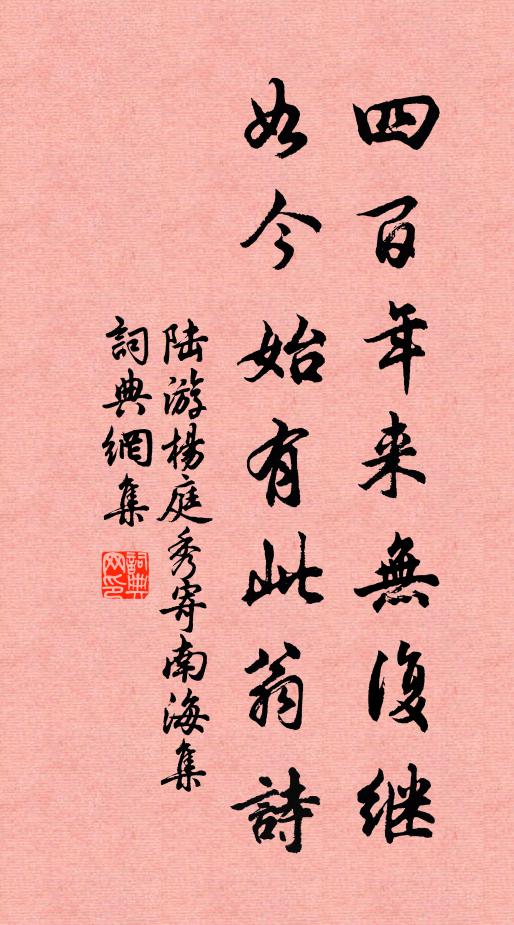 四百年来無復继
如今始有此翁詩
陆游楊庭秀寄南海集
詞典網集
詞典网印